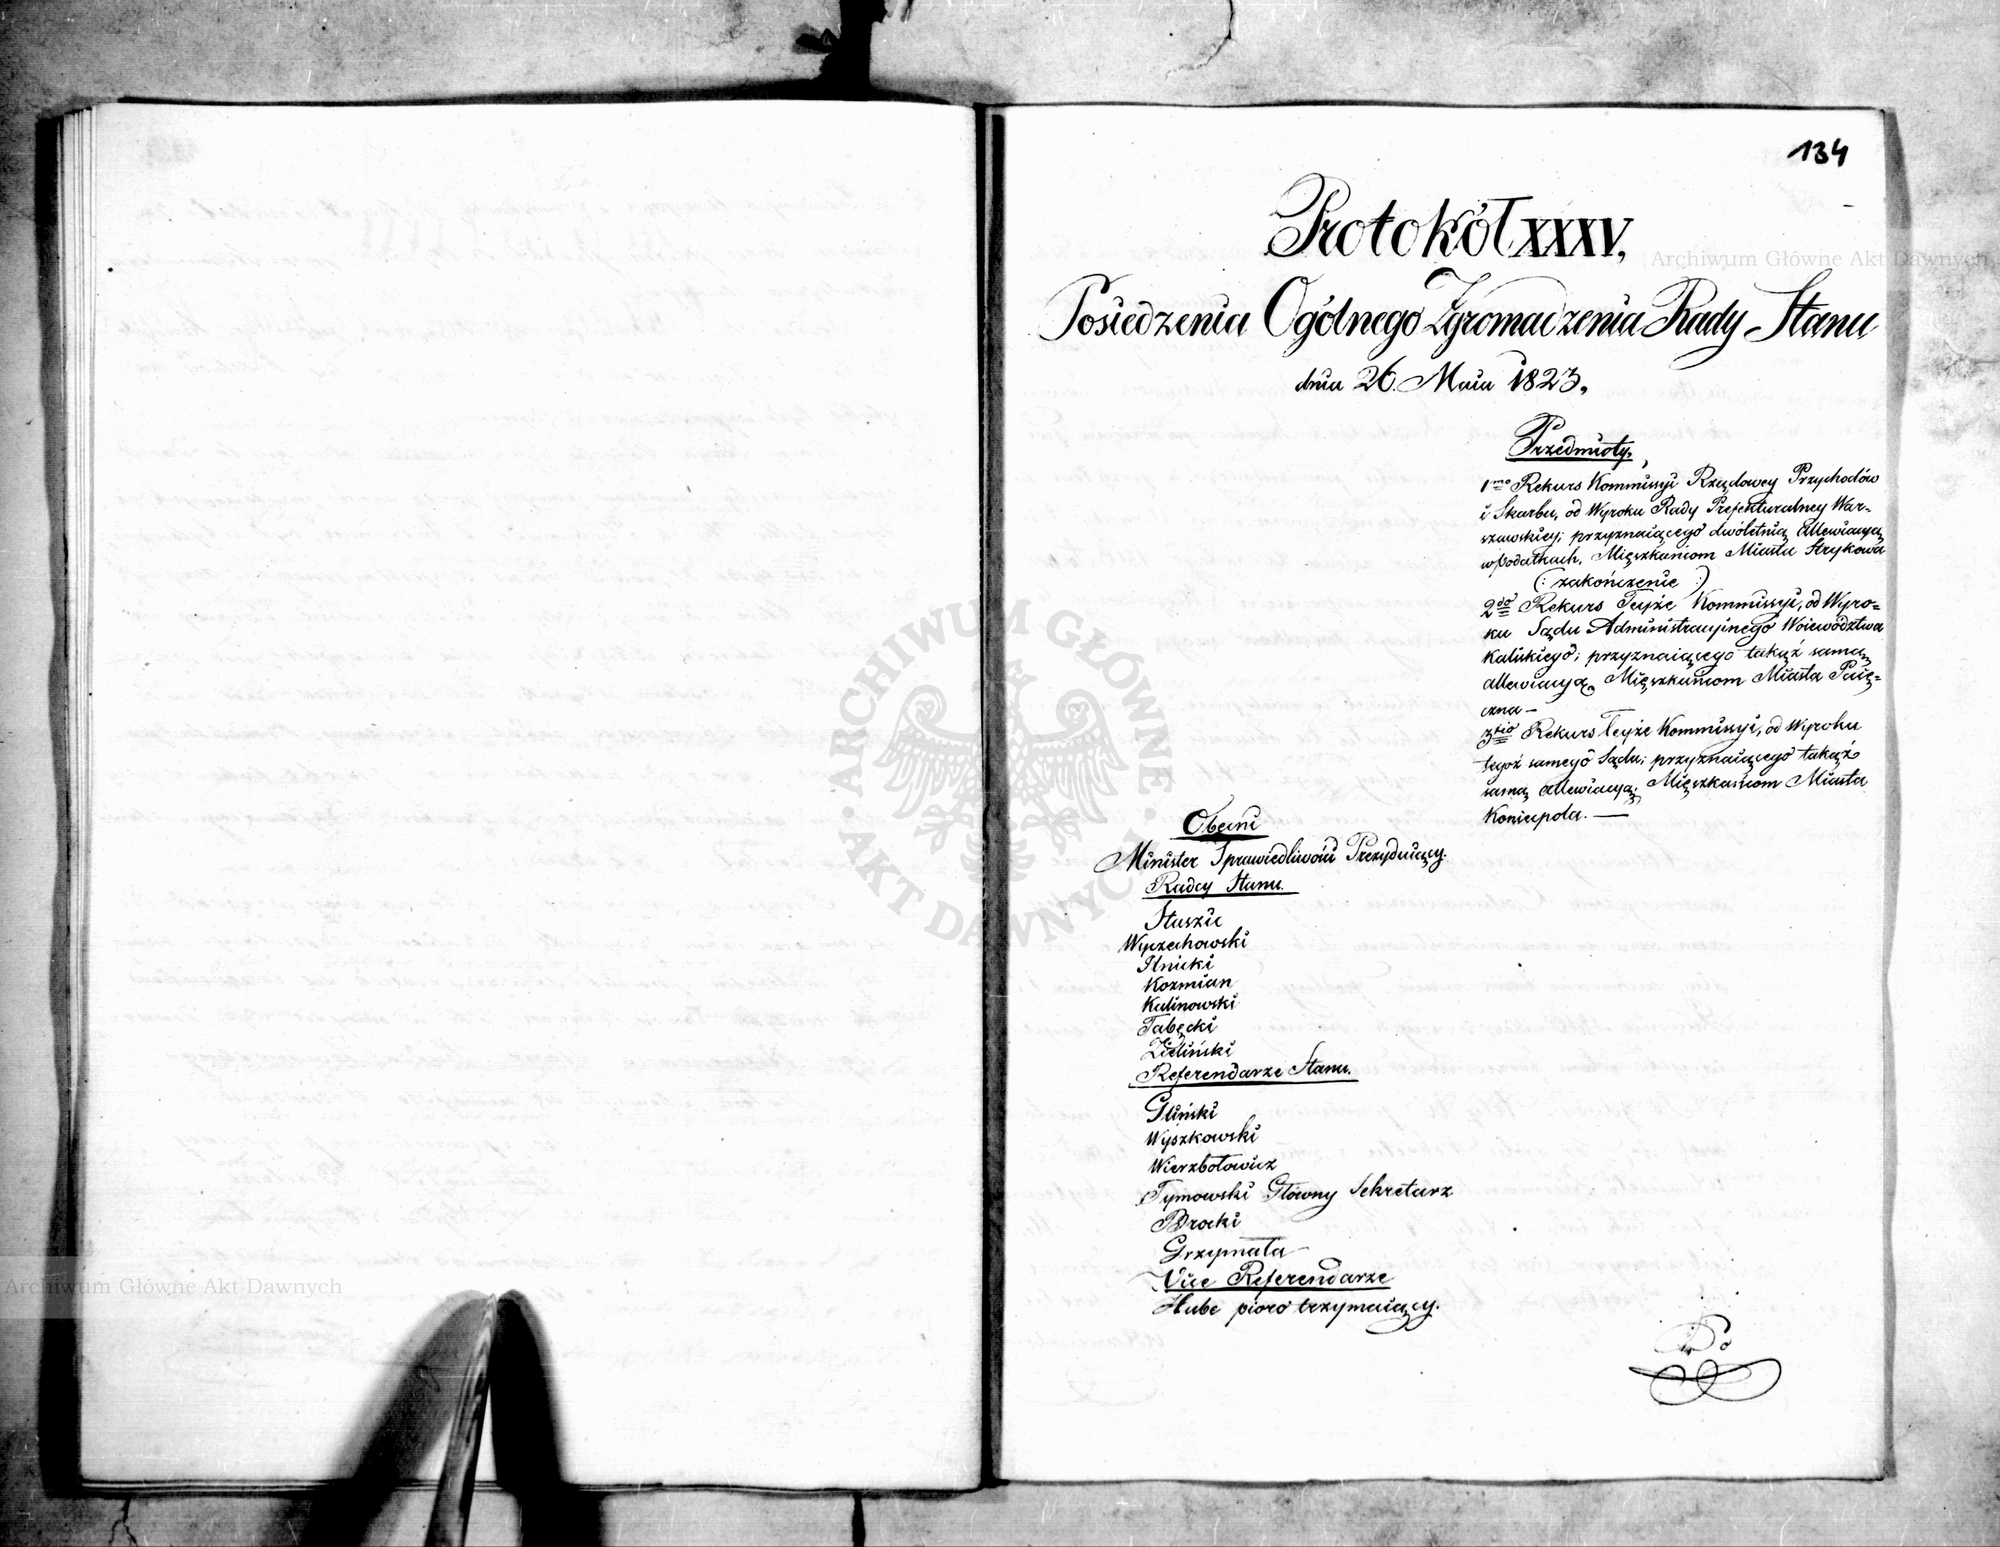 134
Protokół XXXV,
Posiedzenia Ogólnego Zgromadzenia Rady Stanu
dnia 26. Maia 1823,
Przedmioty,
1mo Rekurs Kommissyi Rządowey Przychodów
i Skarbu, od Wyroku Rady Prefekturalney War-
szawskiey; przyznaiącego dwóletnią allewiacyą
w podatkach, Mięszkańcom Miasta Strykowa
(: zakończenie :)
2do Rekurs Teyże Kommissyi, od Wyro=
ku Sądu Administracyinego Woiewództwa
Kaliskiego; przyznaiącego takąż samą
allewiacyą, Mięszkańcom Miasta Paię=
czna —
3tio Rekurs Teyże Kommissyi, od Wyroku
tegoż samego Sądu; przyznaiącego takąż
samą allewiacyą; Mięszkańcom Miasta
Koniecpola. —
Obecni
Minister Sprawiedliwości Prezyduiący.
Radcy Stanu.
Staszic
Wyczechowski
Ilnicki
Koźmian
Kalinowski
Tabęcki
Zieliński
Referendarze Stanu.
Gliński
Wyszkowski
Wierzbołowicz
Tymowski Główny Sekretarz
Brocki
Grzymała
Vice Referendarze
Hube pióro trzymaiący.
Archiwum Główne Akt Dawnych
Archiwum Główne Akt Dawnych
· ARCHIWUM GŁÓWNE · AKT DAWNYCH